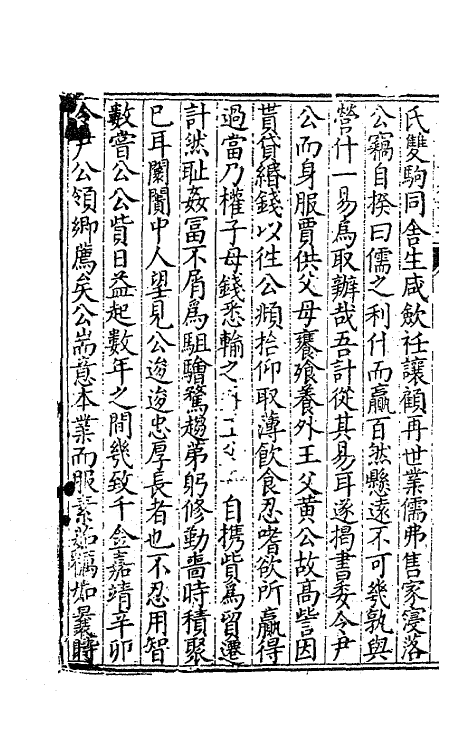 氏雙駒同舍生咸歛衽讓顧再世業儒弗售家寖落
公竊自揆曰儒之利什而贏百然懸遠不可幾孰與
營什一易爲取辦哉吾計從其易耳遂揭書委令尹
公而身服賈供父母饔飱養外王父黄公故高訾因
貰貸緡錢以徃公頫拾仰取薄飲食忍嗜欲所贏得
過當乃權子母錢悉輸之 自携貲爲貿遷
計然耻姦冨不屑爲駔驓騖趨苐躬修勤嗇時積聚
已耳闤闠中人望見公逡逡忠厚長者也不忍用智
數嘗公公貲日益起數年之間幾致千金嘉靖辛卯
令尹公領鄉薦矣公耑意本業而服素 曩時